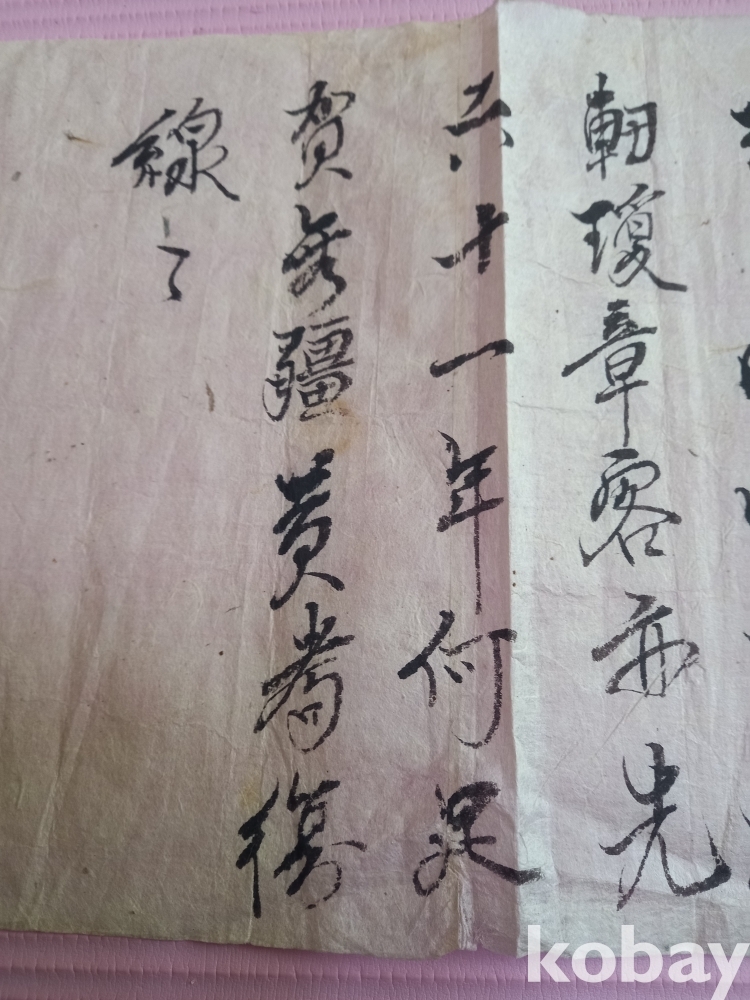 軸瓊章客亦先
六十一年何足
賀無疆黃耈復
線〻
kobay